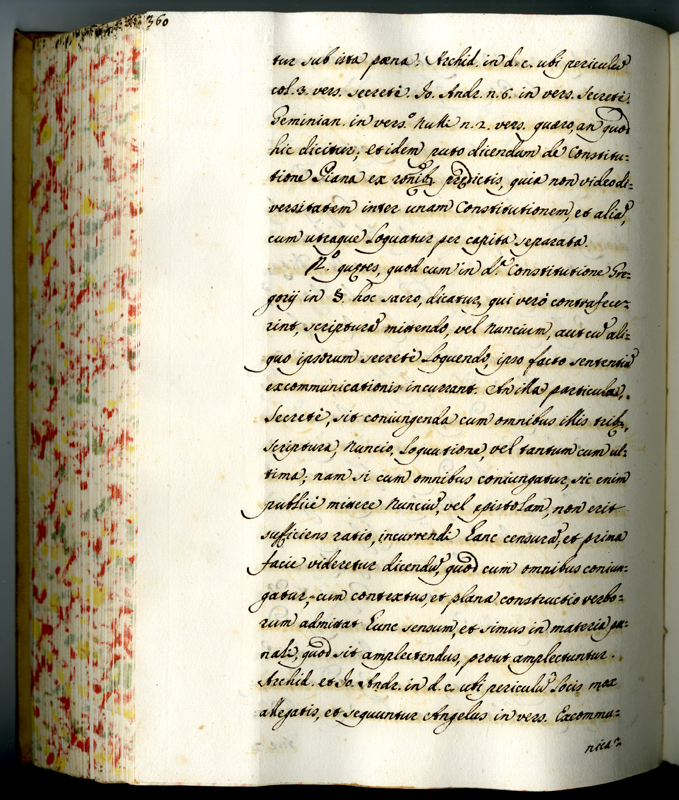 360
tur sub ista pœna. Archid. in d. c. ubi periculũ
col. 3. vers. secretè. Io. Andr. n. 6. in vers. secretè.
Geminian. in vers.º Nulli n. 2. vers. quæro, an quod
hic dicitur, et idem puto dicendum de Constitu=
tione Piana ex predictis, quia non video di=
versitatem inter unam Constitutionem, et aliã,
cum utraque loquatur per capita separata.
quod cum in d.ª Constitutione Gre=
gorij in §. hoc sacro, dicatur, qui verò contrafece=
rint, scripturã mittendo, vel Nuncium, aut cũ ali=
quo ipsorum secretè loquendo, ipso facto sententiã
excommunicationis incurrant. An illa particula,
secretè, sit coniungenda cum omnibus illis
scriptura, Nuncio, loquutione, vel tantum cum ul=
tima; nam si cum omnibus coniungatur, sic enim
publicè mittere Nunciũ, vel epistolam, non erit
sufficiens ratio, incurrendi hanc censurã, et prima
facie videretur dicendũ, quod cum omnibus coniun=
gatur, cum contextus, et plana constructio verbo=
rum admittat hunc sensum, et simus in materia pœ=
nali, quod sit amplectendus, prout amplectuntur
Archid. et Io. Andr. in d. c. ubi periculũ locis mox
allegatis, et sequuntur Angelus in vers. Excommu=
nica